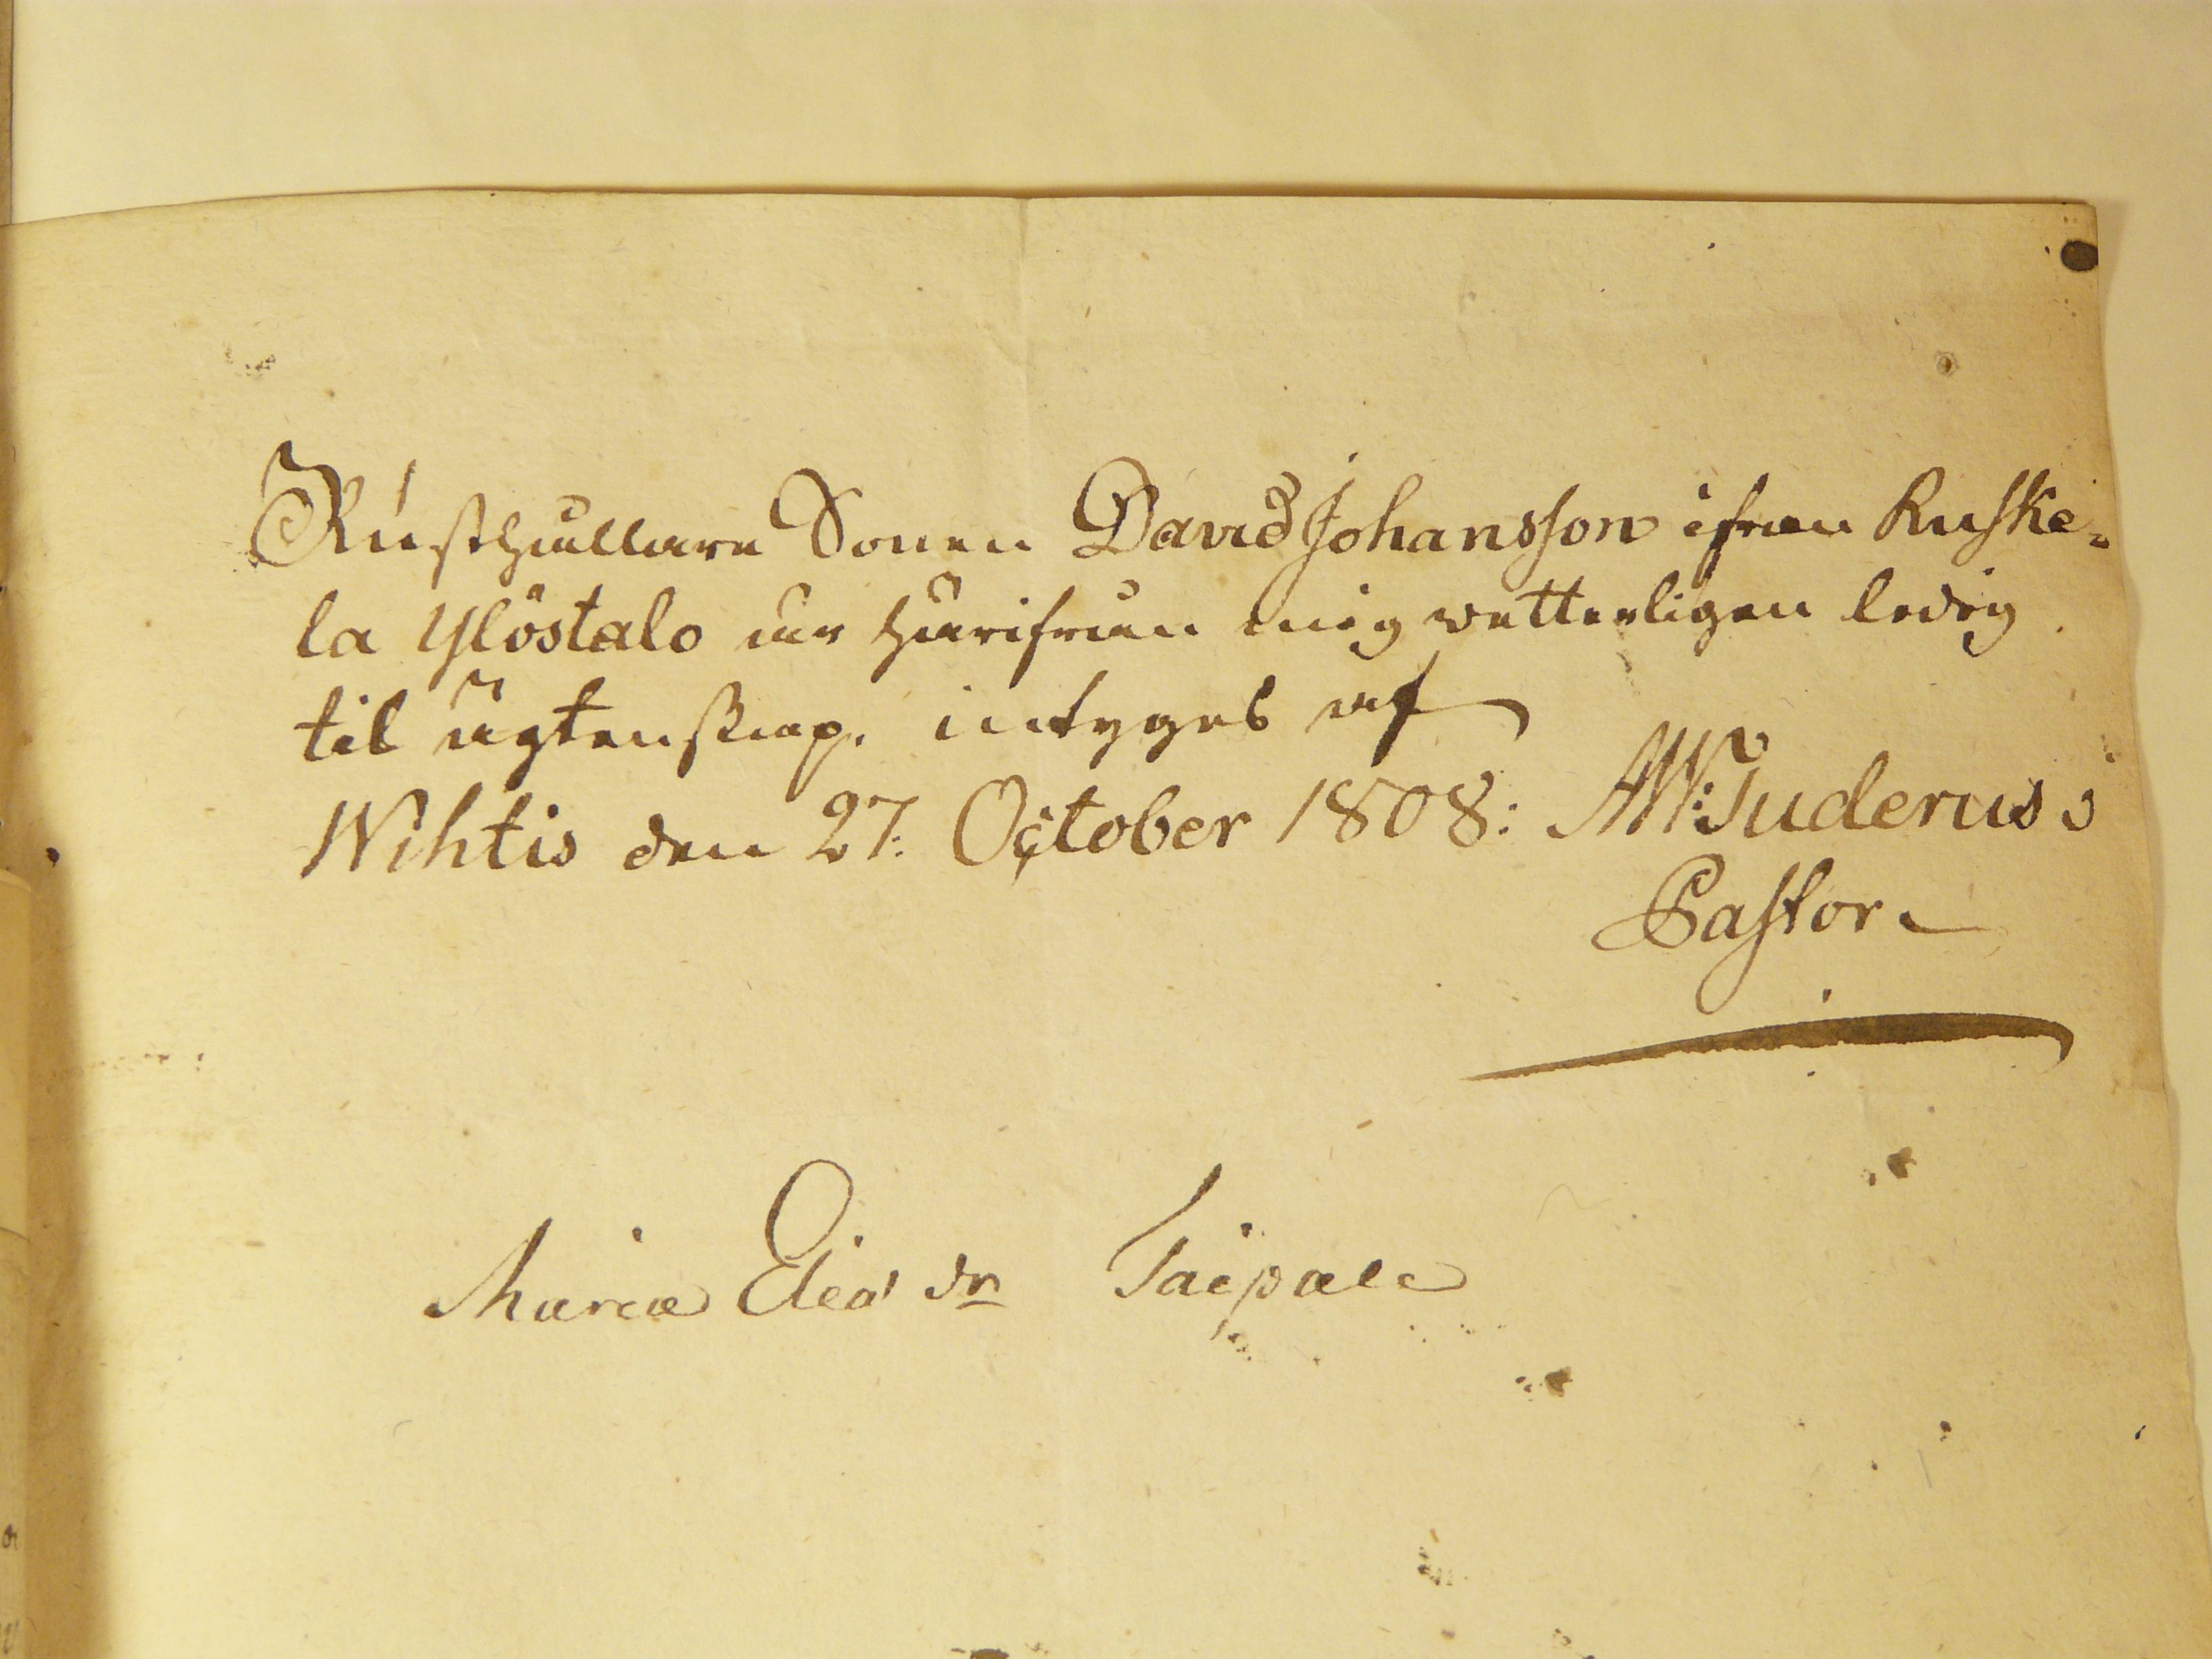 Rusthållare Sonen David Johansson ifrån Ruske=
la Ylöstalo är härifrån mig vetterligen ledig
til ägtenskap. intyges af
Wihtis den 27. October 1808: AW: Tuderus
Pastor
Maria Elia dr Taipale